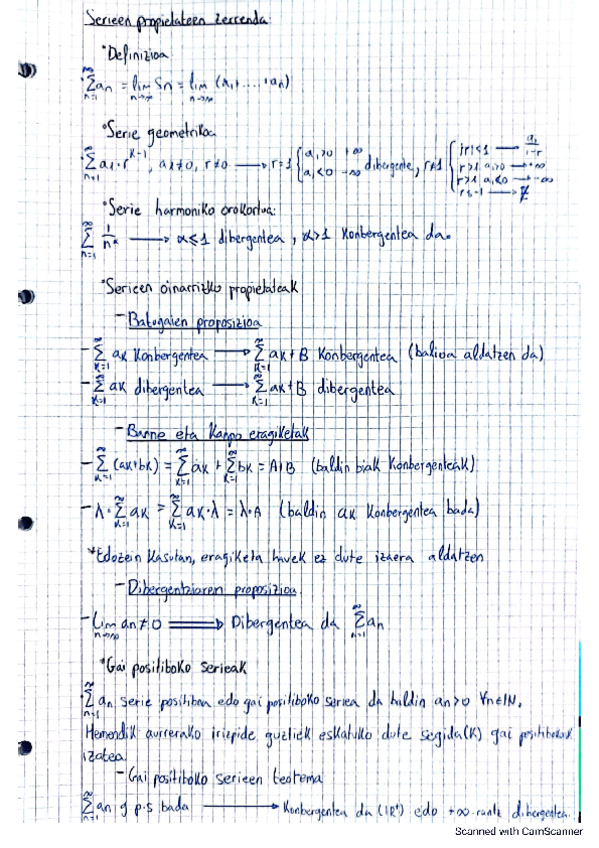 Serieen propietateen zerrenda:
*Definizioa
∑_{n=1}^{∞} an = lim_{n→∞} Sn = lim_{n→∞} (a1+....+an)
*Serie geometrikoa
∑_{n=1}^{∞} a1·r^{k-1}, a1≠0, r≠0 → r=1 { a1>0 +∞ / a1<0 -∞ dibergente, r≠1 { |r|<1 → a1/1-r
r>1 a1>0 → +∞
r>1 a1<0 → -∞
r≤-1 → ∄
*Serie harmoniko orokorlua:
∑_{n=1}^{∞} 1/n^α → α≤1 dibergentea, α>1 Konbergentea da.
*Serieen oinarrizko propietateak
- Batugaien proposizioa
- ∑_{k=1}^{∞} ak Konbergentea → ∑_{k=1}^{∞} ak+B Konbergentea (balioa aldatzen da)
- ∑_{k=1}^{∞} ak dibergentea → ∑_{k=1}^{∞} ak+B dibergentea
- Barne eta Kanpo eragiketak
- ∑_{k=1}^{∞} (ak+bk) = ∑_{k=1}^{∞} ak + ∑_{k=1}^{∞} bk = A+B (baldin biak Konbergenteak)
- λ·∑_{k=1}^{∞} ak = ∑_{k=1}^{∞} ak·λ = λ·A (baldin ak Konbergentea bada)
*Edozein Kasutan, eragiketa hauek ez dute izaera aldatzen
- Dibergentziaren proposizioa
- Lim_{n→∞} an≠0 ⟹ Dibergentea da ∑_{n=1}^{∞} an
*Gai positiboko serieak
∑_{n=1}^{∞} an serie positiboa edo gai positiboko seriea da baldin an>0 ∀n∈IN.
Hemendik aurrerako irizpide guztiek eskatuko dute segida(k) gai positiboak
izatea.
- Gai positiboko serieen teorema
∑_{n=1}^{∞} an g.p.s bada → Konbergentea da (IR+) edo +∞-rantz dibergentea.
Scanned with CamScanner